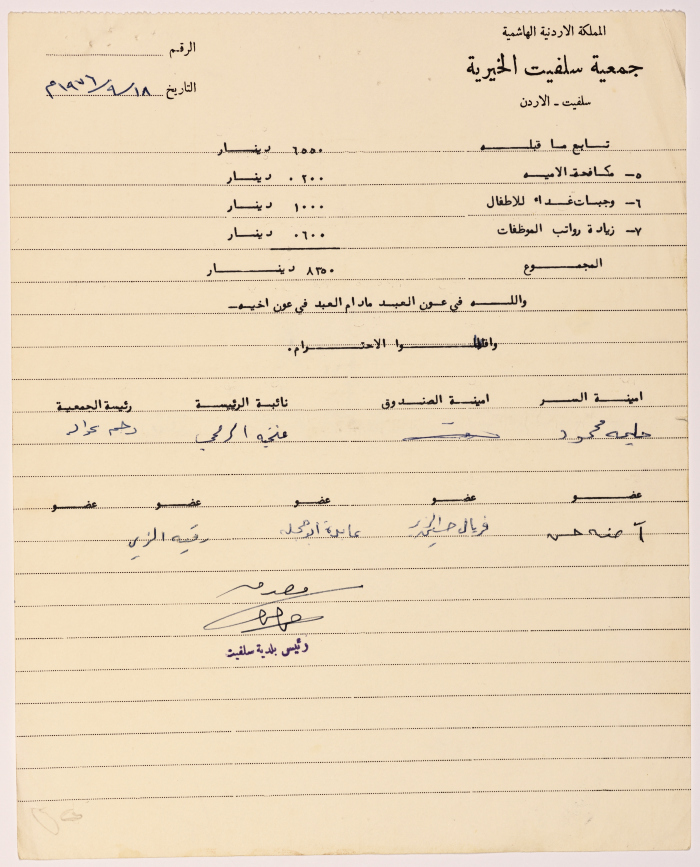 المملكة الاردنية الهاشمية
جمعية سلفيت الخيرية
سلفيت - الاردن
الرقم
التاريخ ١٨/٩/١٩٧٦م
تابع ما قبله ٦٥٥٠ دينار
٥- مكافحة الاميه ٠٢٠٠ دينار
٦- وجبات غداء للاطفال ١٠٠٠ دينار
٧- زيادة رواتب الموظفات ٠٦٠٠ دينار
المجموع ٨٣٥٠ دينار
والله في عون العبد مادام العبد في عون اخيه-
واقبلوا الاحترام.
امينة السر امينة الصندوق نائبة الرئيسة رئيسة الجمعية
حليمه محمود
عضو عضو عضو عضو عضو
آمنه حسن فريال رقيه الزير
مصدق
رئيس بلدية سلفيت